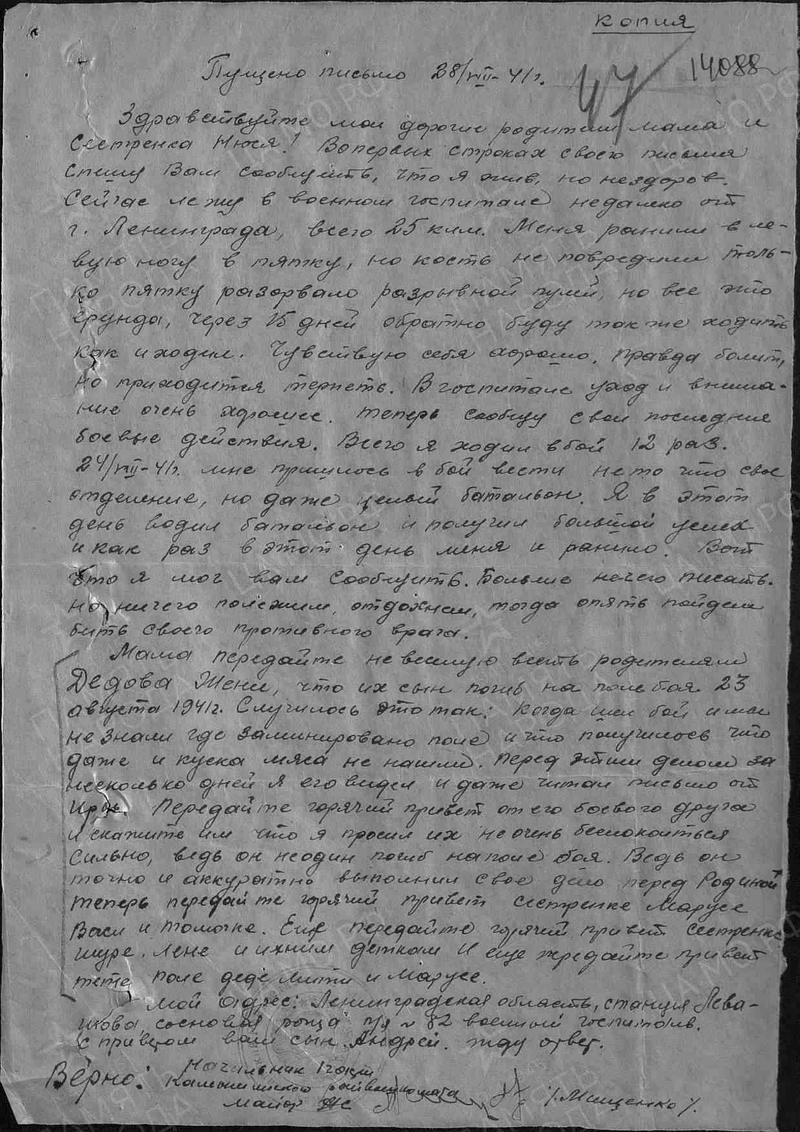 копия
Пущено письмо 28/VIII-41г. 47 14088
Здравствуйте мои дорогие родители мама и
сестренка Нюся! Вопервых строках своего письма
спешу Вам сообщить, что я жив, но нездоров.
Сейчас лежу в военном госпитале недалеко от
г. Ленинграда, всего 25 клм. Меня ранили в ле-
вую ногу в пятку, но кость не повредили толь-
ко пятку разорвало разрывной пулей, но все это
ерунда, через 15 дней обратно буду так же ходить
как и ходил. Чувствую себя хорошо, правда болит,
но приходится терпеть. В госпитале уход и внима-
ние очень хорошее. теперь сообщу свои последние
боевые действия. Всего я ходил в бой 12 раз.
24/VIII-41г. мне пришлось в бой вести не то что свое
отделение, но даже целый батальон. Я в этот
день водил батальон и получил большой успех
и как раз в этот день меня и ранило. Вот
что я мог вам сообщить. Больше нечего писать.
но ничего полежим, отдохнем, тогда опять пойдем
бить своего противного врага.
Мама передайте не веселую весть родителям
Дедова Жени, что их сын погиб на поле боя 23
августа 1941г. Случилось это так: когда шел бой и мы
не знали где заминировано поле и что получилось что
даже и куска мяса не нашли. Перед этим делом за
несколько дней я его видел и даже читал письмо от
Передайте горячий привет от его боевого друга
и скажите им что я просил их не очень беспокоиться
сильно, ведь он не один погиб на поле боя. Ведь он
точно и аккуратно выполнил свое дело перед Родиной
теперь передайте горячий привет сестренке Марусе
Васи и Томочке. Еще передайте горячий привет сестренке
шуре, Лене и ихним деткам И еще передайте привет
тете поле деде Мити и Марусе.
Мой адрес: Ленинградская область, станция Лева-
шова, сосновая роща п/я № 82 военный госпиталь.
с приветом ваш сын Андрей. жду ответ.
Верно: Начальник 1 части
Камышинского райвоенкомата
майор /Мищенко/.